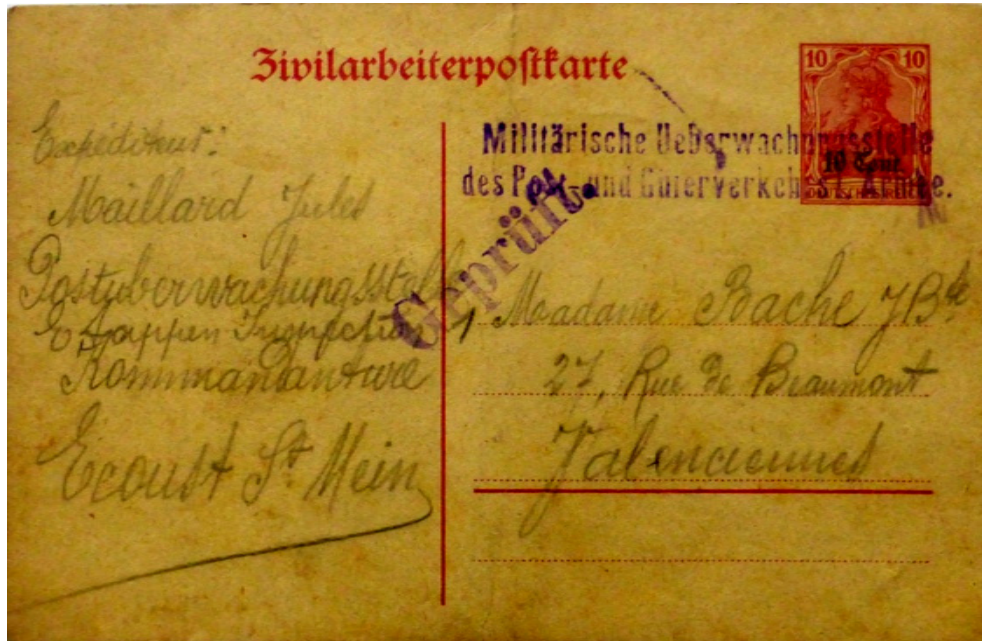 Zivilarbeiterpostkarte
10 10
10 Cent.
Militärische Ueberwachungsstelle
des Post- und Güterverkehrs 1. Armee.
Geprüft.
Expéditeur:
Maillard Jules
Postüberwachungsstelle
Etappen Inspection 1
Kommandantur
Ecoust St Mein
Madame Bache J Bte
27, Rue de Beaumont
Valenciennes